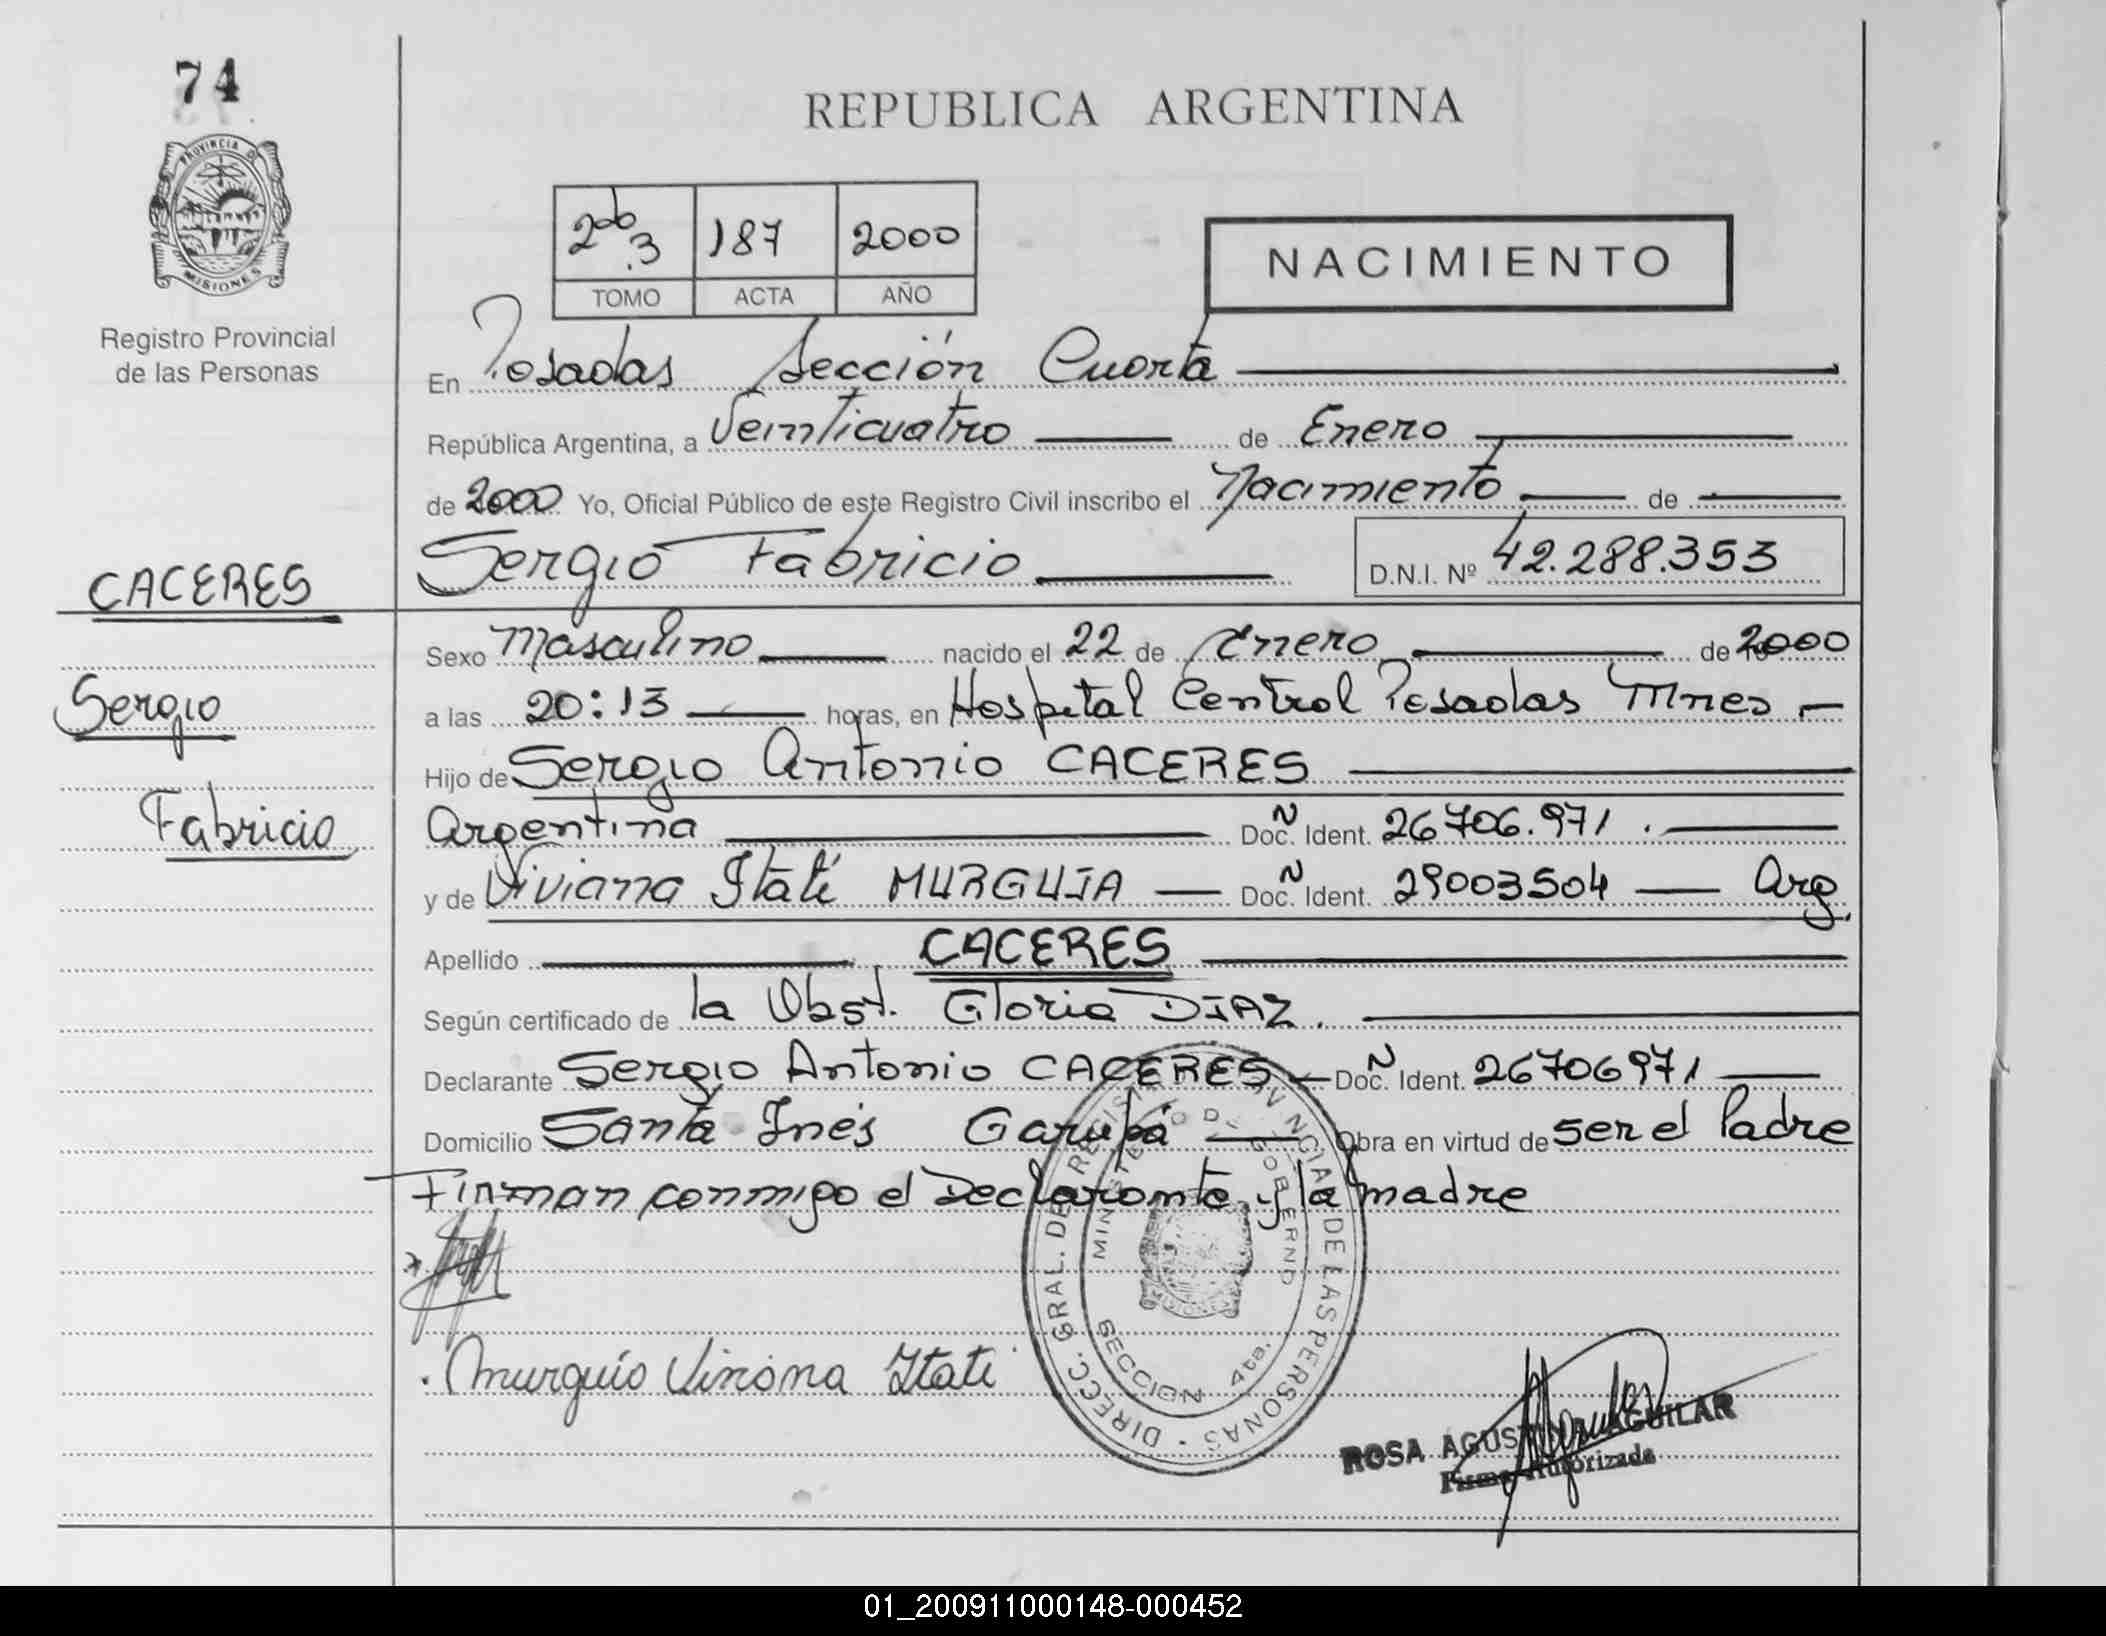 74
PROVINCIA D
MISIONES
Registro Provincial
de las Personas
CACERES
Sergio
Fabricio
REPUBLICA ARGENTINA
2do.3 187 2000
TOMO ACTA AÑO
NACIMIENTO
En Posadas Sección Cuarta
República Argentina, a Veinticuatro de Enero
de 2000 Yo, Oficial Público de este Registro Civil inscribo el Nacimiento de
Sergio Fabricio D.N.I. Nº 42.288.353
Sexo Masculino nacido el 22 de Enero de 2000
a las 20:13 horas, en Hospital Central Posadas Mnes
Hijo de Sergio Antonio CACERES
Argentina Doc. Ñ Ident. 26706.971
y de Viviana Itatí MURGUIA Doc. Ñ Ident. 29003504 Arg.
Apellido CACERES
Según certificado de la Obst. Gloria DIAZ.
Declarante Sergio Antonio CACERES Doc. Ñ Ident. 26706971
Domicilio Santa Inés Garupá Obra en virtud de ser el Padre
Firman conmigo el Declarante y la madre
DIRECC. GRAL. DE DE LAS PERSONAS
MINISTERIO DE GOBIERNO
SECCION 4ta.
Murguía Viviana Itati
ROSA AGUSTINA AGUILAR
Firma Autorizada
01_200911000148-000452